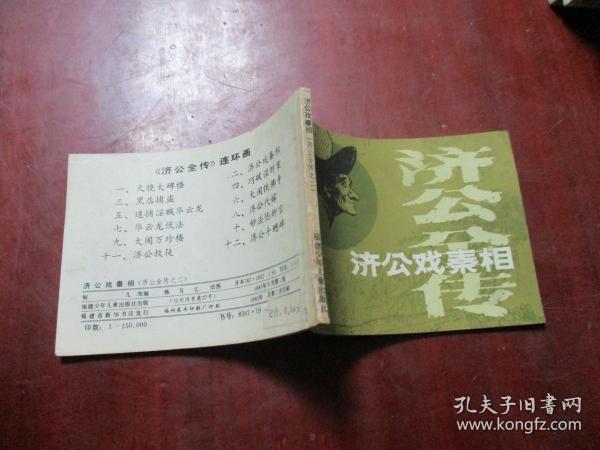 《济公全传》连环画
一、火烧大碑楼
二、济公戏秦相
三、黑店捕盗
四、巧破谋财案
五、追捕淫贼华云龙
六、大闹铁佛寺
七、华云龙伏法
八、济公代嫁
九、大闹万珍楼
十、妙法惩妙空
十一、济公救歧
十二、济公斗蟋蟀
济公戏秦相（济公全传之二）
改编
绘图
福建少年儿童出版社出版
福建省新华书店发行
福州美术印刷厂印刷
印数：1—150,000
书号：8367·19
定价：
济公戏秦相（济公全传之二）
福建少年儿童出版社
济公全传
济公戏秦相
孔夫子旧书网
www.kongfz.com